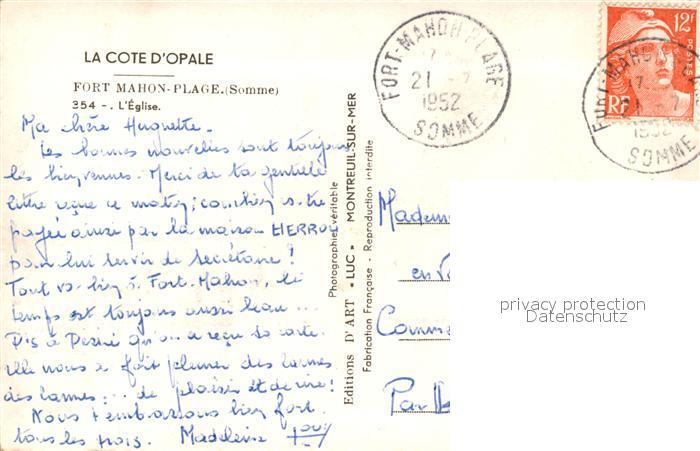 LA COTE D'OPALE
FORT MAHON-PLAGE.(Somme)
354 -. L'Église.
Ma chère Huguette.
Les bonnes nouvelles sont toujours
les bienvenues. Merci de ta gentille
lettre reçue ce matin; combien
payée ainsi par la maison
pour lui servir de secrétaire !
Tout va bien à Fort-Mahon, le
temps est toujours aussi beau ...
Dis à Désiré qu'on a reçu sa carte.
elle nous a fait pleurer des larmes
des larmes ... de plaisir et de rire !
Nous t'embrassons bien fort.
tous les trois. Madeleine
Photographie véritable
Editions D'ART "LUC" MONTREUIL-SUR-MER
Fabrication Française - Reproduction interdite
FORT-MAHON-PLAGE
17
21 - 7
1952
SOMME
12F
POSTES
RF
FORT-MAHON-PLAGE
17
21 - 7
1952
SOMME
Madem
en V
Comm
Par
privacy protection
Datenschutz